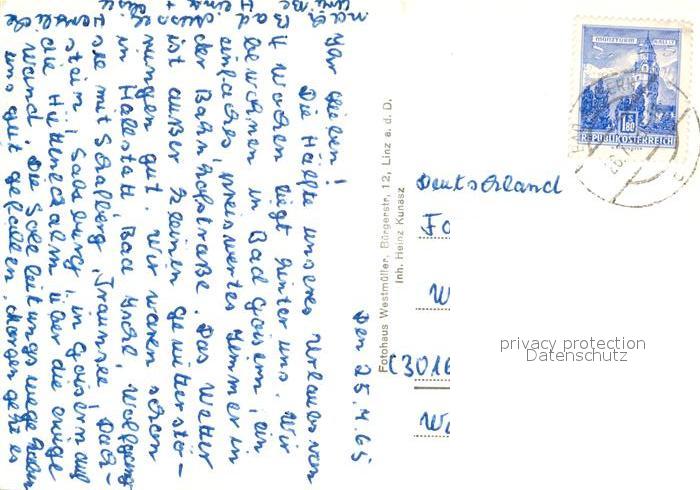 Den 25.4.65
Ihr Lieben!
Die Hälfte unseres Urlaubs von
3½ Wochen liegt hinter uns. Wir
bewohnen in Bad Goisern, ein
einfaches, preiswertes Zimmer in
der Bahnhofstraße. Das Wetter
ist außer kleinen Gewitterstö-
rungen gut. Wir waren schon
in Hallstatt, Bad Ischl, Wolfgang
see mit Schafberg, Traunsee, Dach-
stein, Salzburg, in Goisern auf
die Hütteneckalm über die ewige
Wand. Die Soleleitungswege haben
uns gut gefallen. Morgen geht es
nach
Fotohaus Westmüller, Bürgerstr. 12, Linz a. d. D.
Inh. Heinz Kunasz
MÜNZTURM HALL I/T
S 1.80
REPUBLIK ÖSTERREICH
Deutschland
Fa
W
(3016
We
privacy protection
Datenschutz